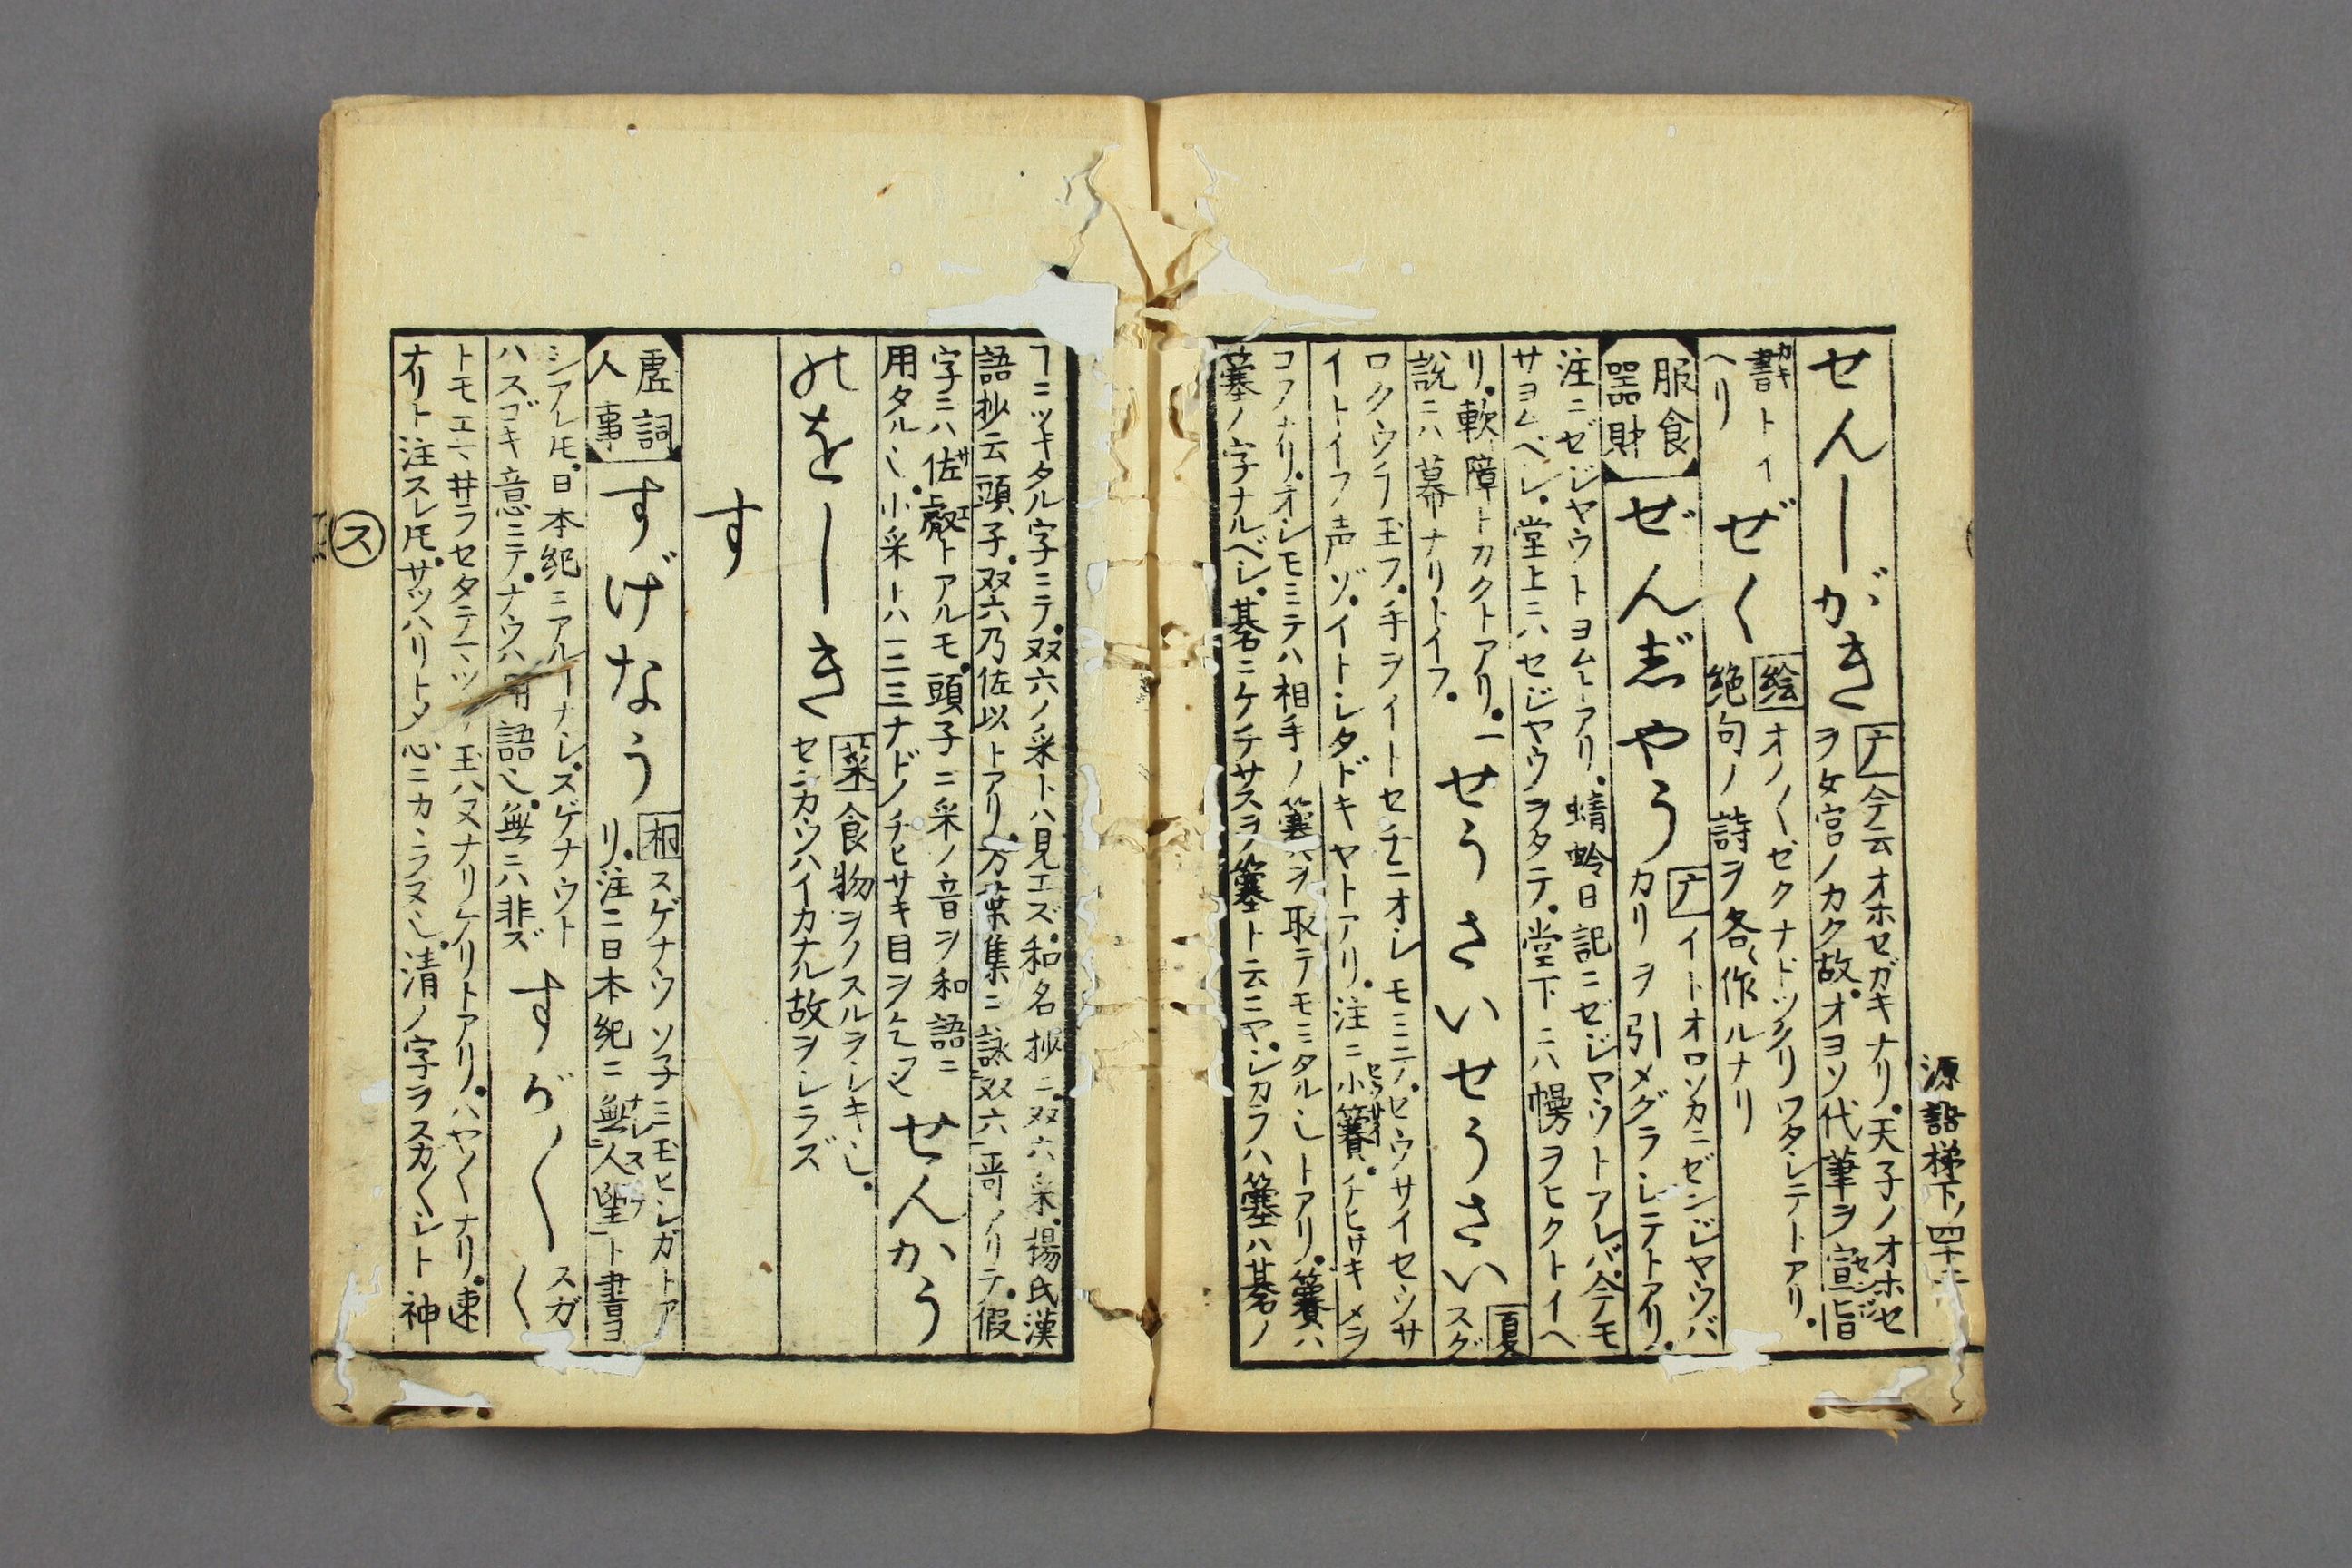 源語梯下ノ四十
せんじがき
ア 今云オホセガキナリ。天子ノオホセ
ヲ女官ノカク故。オヨソ代筆ヲ宣旨
書トイ
ヘリ
ぜく
絵 オノ〱ゼクナドツクリワタシテトアリ。
絶句ノ詩ヲ各〻作ルナリ
服食
器財
ぜんざやう
ア イトオロソカニゼンジヤウバ
カリヲ引メグラシテトアリ。
注ニゼジヤウトヨムトアリ。蜻蛉日記ニゼジヤウトアレバ。今モ
サヨムベシ。堂上ニハセジヤウヲタテ。堂下ニハ幔ヲヒクトイヘ
リ。軟障トカクトアリ。一
説ニハ幕ナリトイフ。
せうさいせうさい
夏 スグ
ロクウチ玉フ。手ヲイトセチニオシモミテ。セウサイセウサ
イトイフ声ゾ。イトシタドキヤトアリ。注ニ小簺。チヒサキメヲ
コフナリ。オシモミテハ相手ノ簺ヲ取テモミタルシトアリ。簺ハ
簺ノ字ナルベシ。碁ニケチサスヲ簺ト云ニヤ。シカラハ簺ハ碁ノ
ヿニツキタル字ニテ。双六ノ采トハ見エズ。和名抄ニ。双六采。楊氏漢
語抄云頭子。双六乃佐以トアリ。万葉集ニ詠双六哥アリテ。假
字ニハ佐叡トアルモ。頭子ニ采ノ音ヲ和語ニ
用タルシ。小采トハ一二三ナドノチヒサキ目ヲ
せんかう
のをしき
葉 食物ヲノスルヲシキシ。
センカウハイカナル故ヲシラズ
す
虚詞
人事
すげなう
桐 スゲナウソ子ミ玉ヒシガトア
リ。注ニ日本紀ニ無人望ト書ヨ
シアレ𪜈。日本紀ニアルーナシ。スゲナウト
ハスゴキ意ニテ。ナウハ用語シ。無ニハ非ズ
すが〱
スガ〱
トモエマ井ラセタテマツリ玉ハヌナリケリトアリ。ハヤクナリ。速
ナリト注スレ𪜈。サツハリトメ心ニカヽラヌシ。清ノ字ヲスガ〱シト神
ス